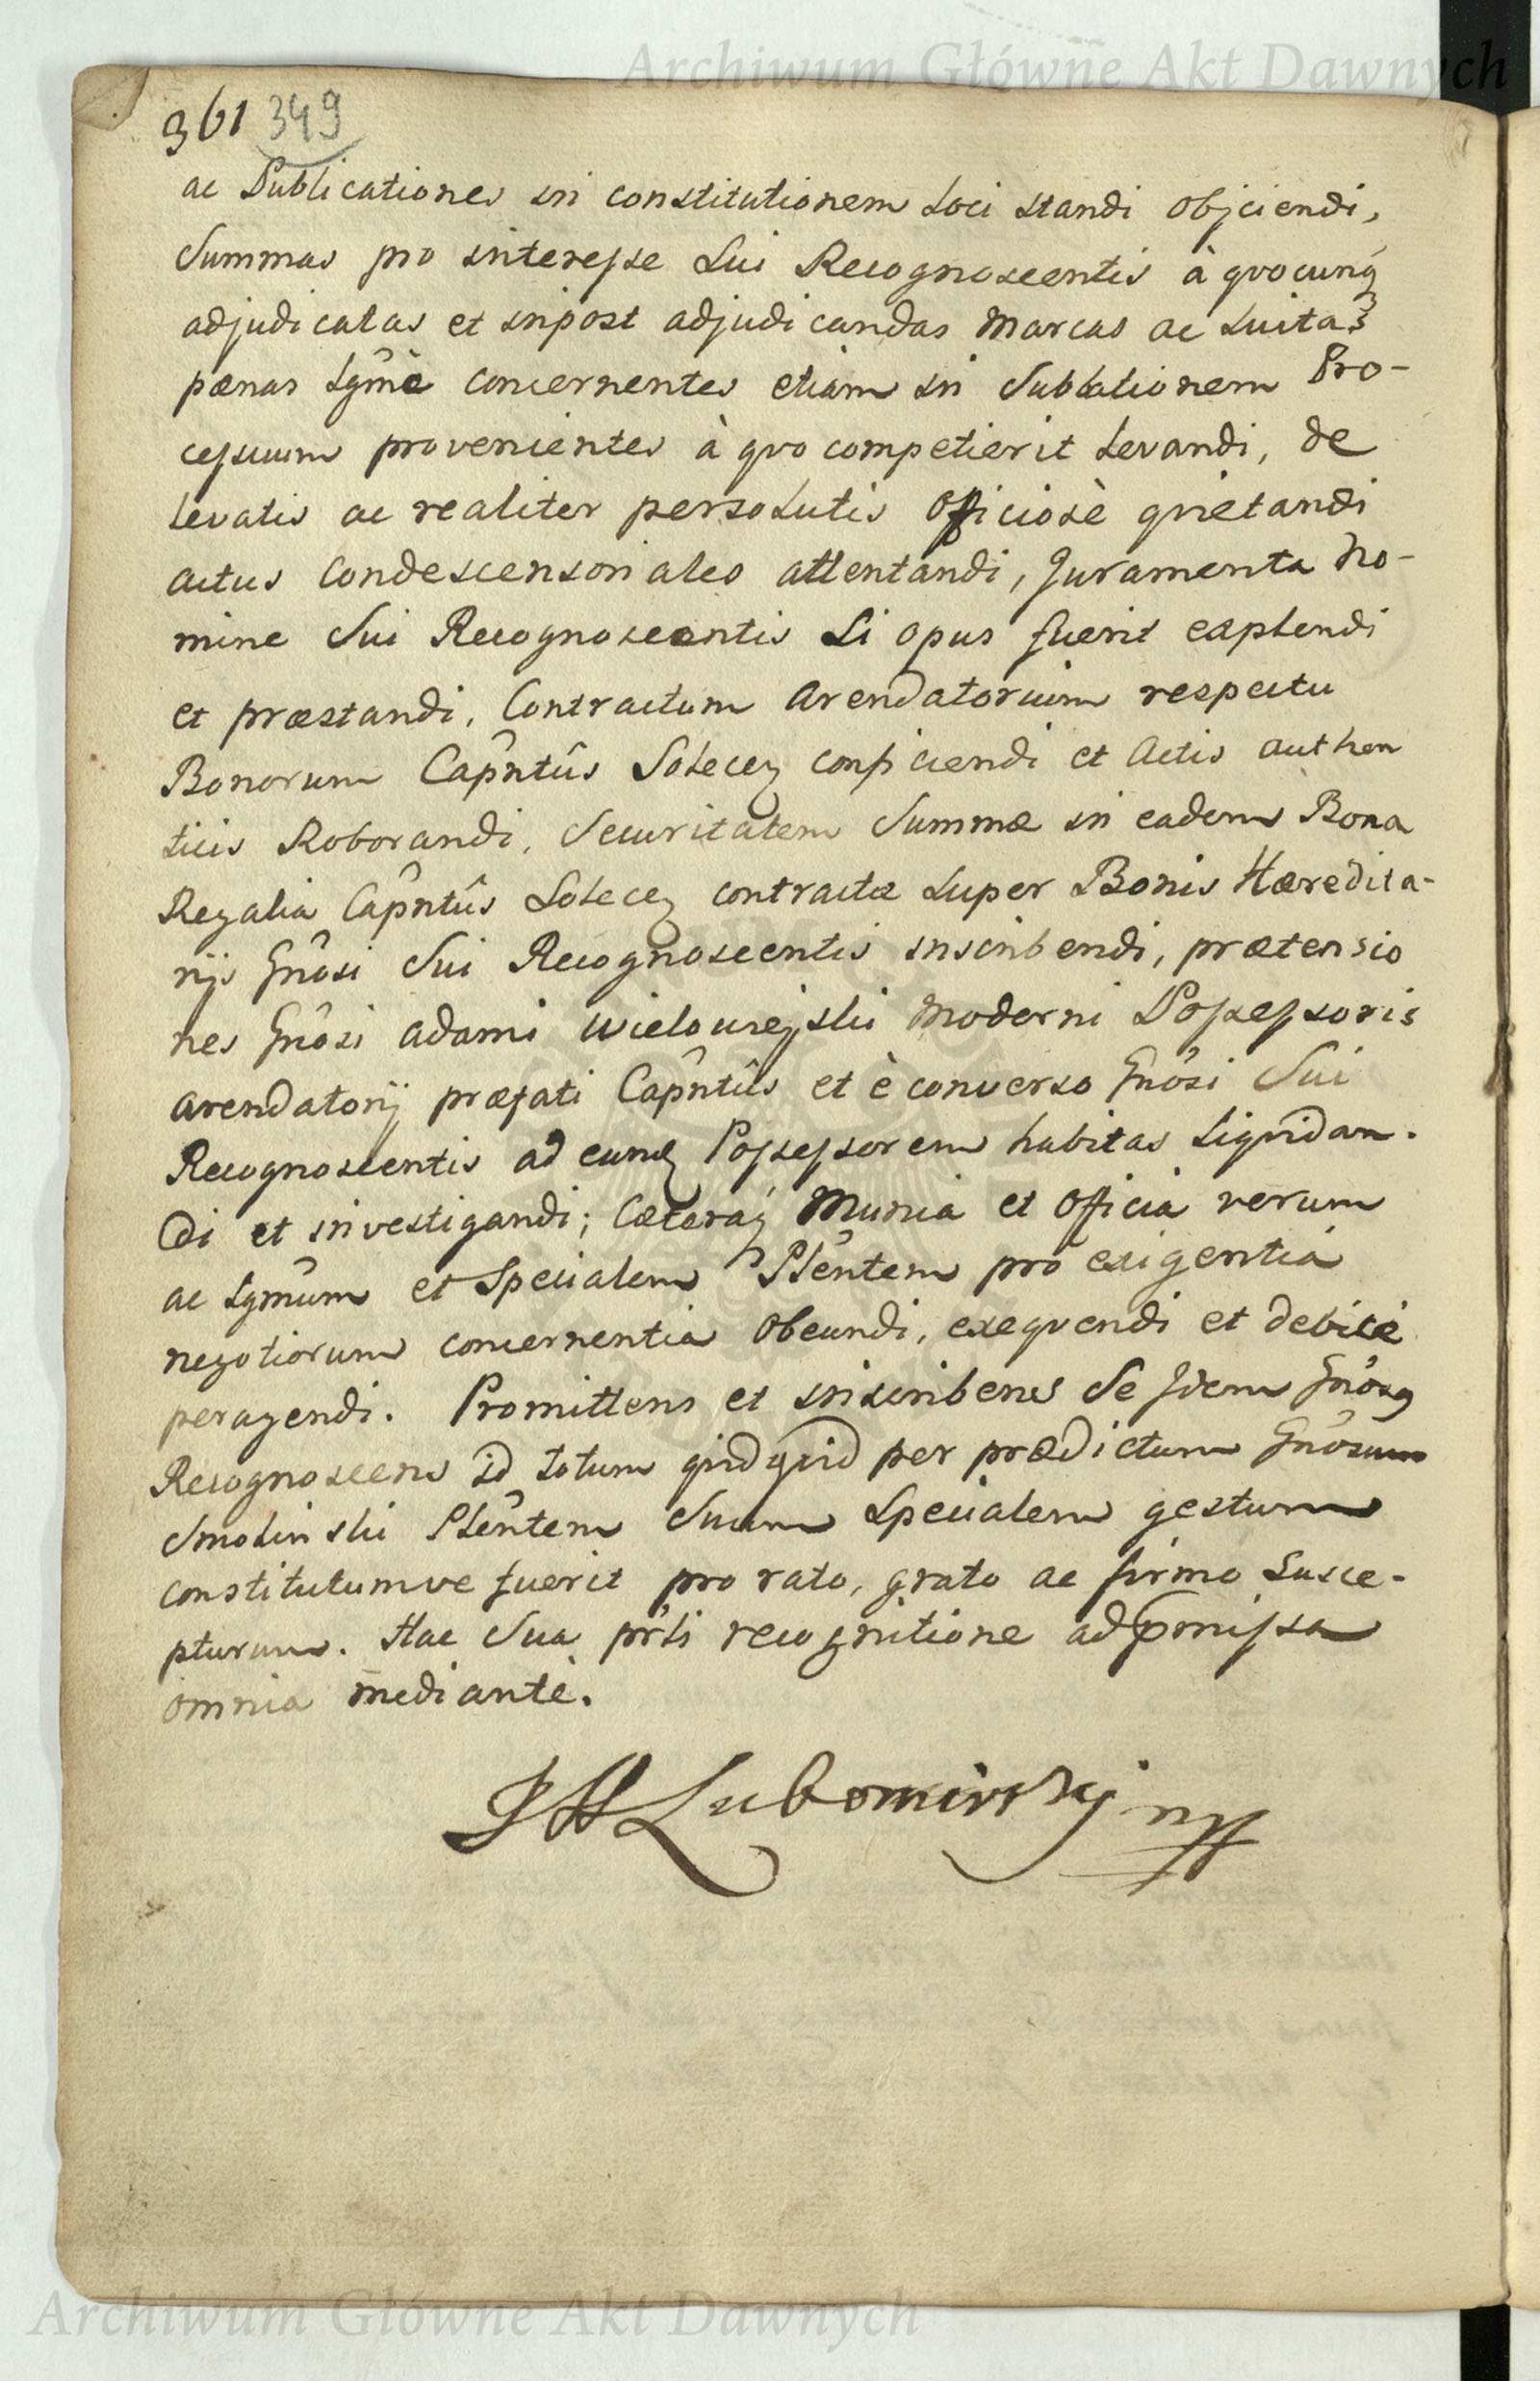 Archiwum Główne Akt Dawnych
361 349
ac Publicationes in constitutionem Loci standi objiciendi,
Summas pro interesse Sui Recognoscentis à qvocunq
adjudicatas et inpost adjudicandas Marcas ac Luitas
pœnas Lgmè concernentes etiam in Sublationem Pro-
cessuum provenientes à qvo competierit Levandi, de
levatis ac realiter persolutis officiosè qvietandi
actus Condescensoriales attentandi, Juramenta no-
mine Sui Recognoscentis Si opus fuerit explendi
et præstandi, Contractum Arendatorium respectu
Bonorum Capntûs Solecen conficiendi et Actis authen
ticis Roborandi, Securitatem Summæ in eadem Bona
Regalia Capntûs Solecen contractæ Super Bonis Hæredita-
rijs Gnôsi Sui Recognoscentis inscribendi, prætensio
nes Gnôsi Adami Wielowiejski Moderni Possessoris
Arendatorij præfati Capntûs et è converso Gnôsi Sui
Recognoscentis ad eund Possessorem habitas Liqvidan-
di et investigandi; Cæteraq Munia et officia verum
ac Lgmum et Specialem Plêntem pro exigentia
negotiorum concernentia obeundi, exeqvendi et debitè
peragendi. Promittens et inscribens Se Idem Gnôsus
Recognoscens id totum qvidqvid per prædictum Gnôsum
Smolinski Plêntem Suum Specialem gestum
constitutumve fuerit pro rato, grato ac firmo Susce-
pturum. Hac Sua prnti recognitione ad præmissa
omnia mediante.
Lubomirskj mp
Archiwum Główne Akt Dawnych